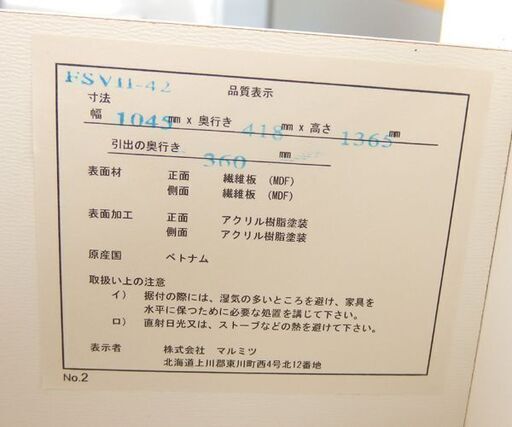 FSVH-42
品質表示
寸法
幅 1045 mm x 奥行き 418 mm x 高さ 1365 mm
引出の奥行き 360 mm
表面材 正面 繊維板 (MDF)
側面 繊維板 (MDF)
表面加工 正面 アクリル樹脂塗装
側面 アクリル樹脂塗装
原産国 ベトナム
取扱い上の注意
イ) 据付の際には、湿気の多いところを避け、家具を
水平に保つために必要な処置を講じて下さい。
ロ) 直射日光又は、ストーブなどの熱を避けて下さい。
表示者 株式会社 マルミツ
北海道上川郡東川町西4号北12番地
No.2